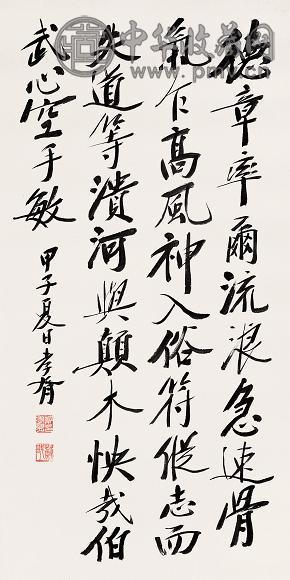 德章率爾流浪急速骨
氣乍高風神入俗符從志而
失道等潰河與顛木怏哉伯
武心空手敏
甲子夏日孝胥
中华收藏网